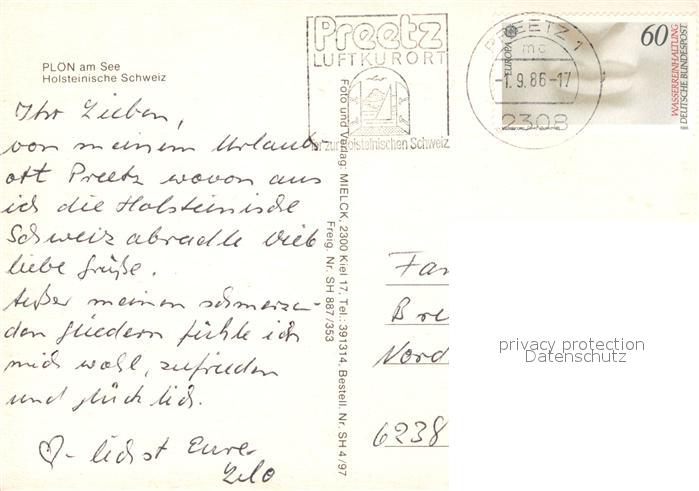 PLON am See
Holsteinische Schweiz
Ihr Lieben,
von meinem Urlaubs-
ort Preetz wovon aus
ich die Holsteinische
Schweiz abradle viele
liebe Grüße.
Außer meinen schmerzen-
den Gliedern fühle ich
mich wohl, zufrieden
und glücklich.
♡-lichst Eure
Preetz
LUFTKURORT
Tor zur Holsteinischen Schweiz
PREETZ 1
mc
-1.9.86-17
2308
EUROPA
60
WASSERREINHALTUNG
DEUTSCHE BUNDESPOST
Foto und Verlag: MIELCK, 2300 Kiel 17, Tel.: 391314, Bestell. Nr. SH 4/97
Freig. Nr. SH 887/353
Fam
Bre
Nord
6238
privacy protection
Datenschutz